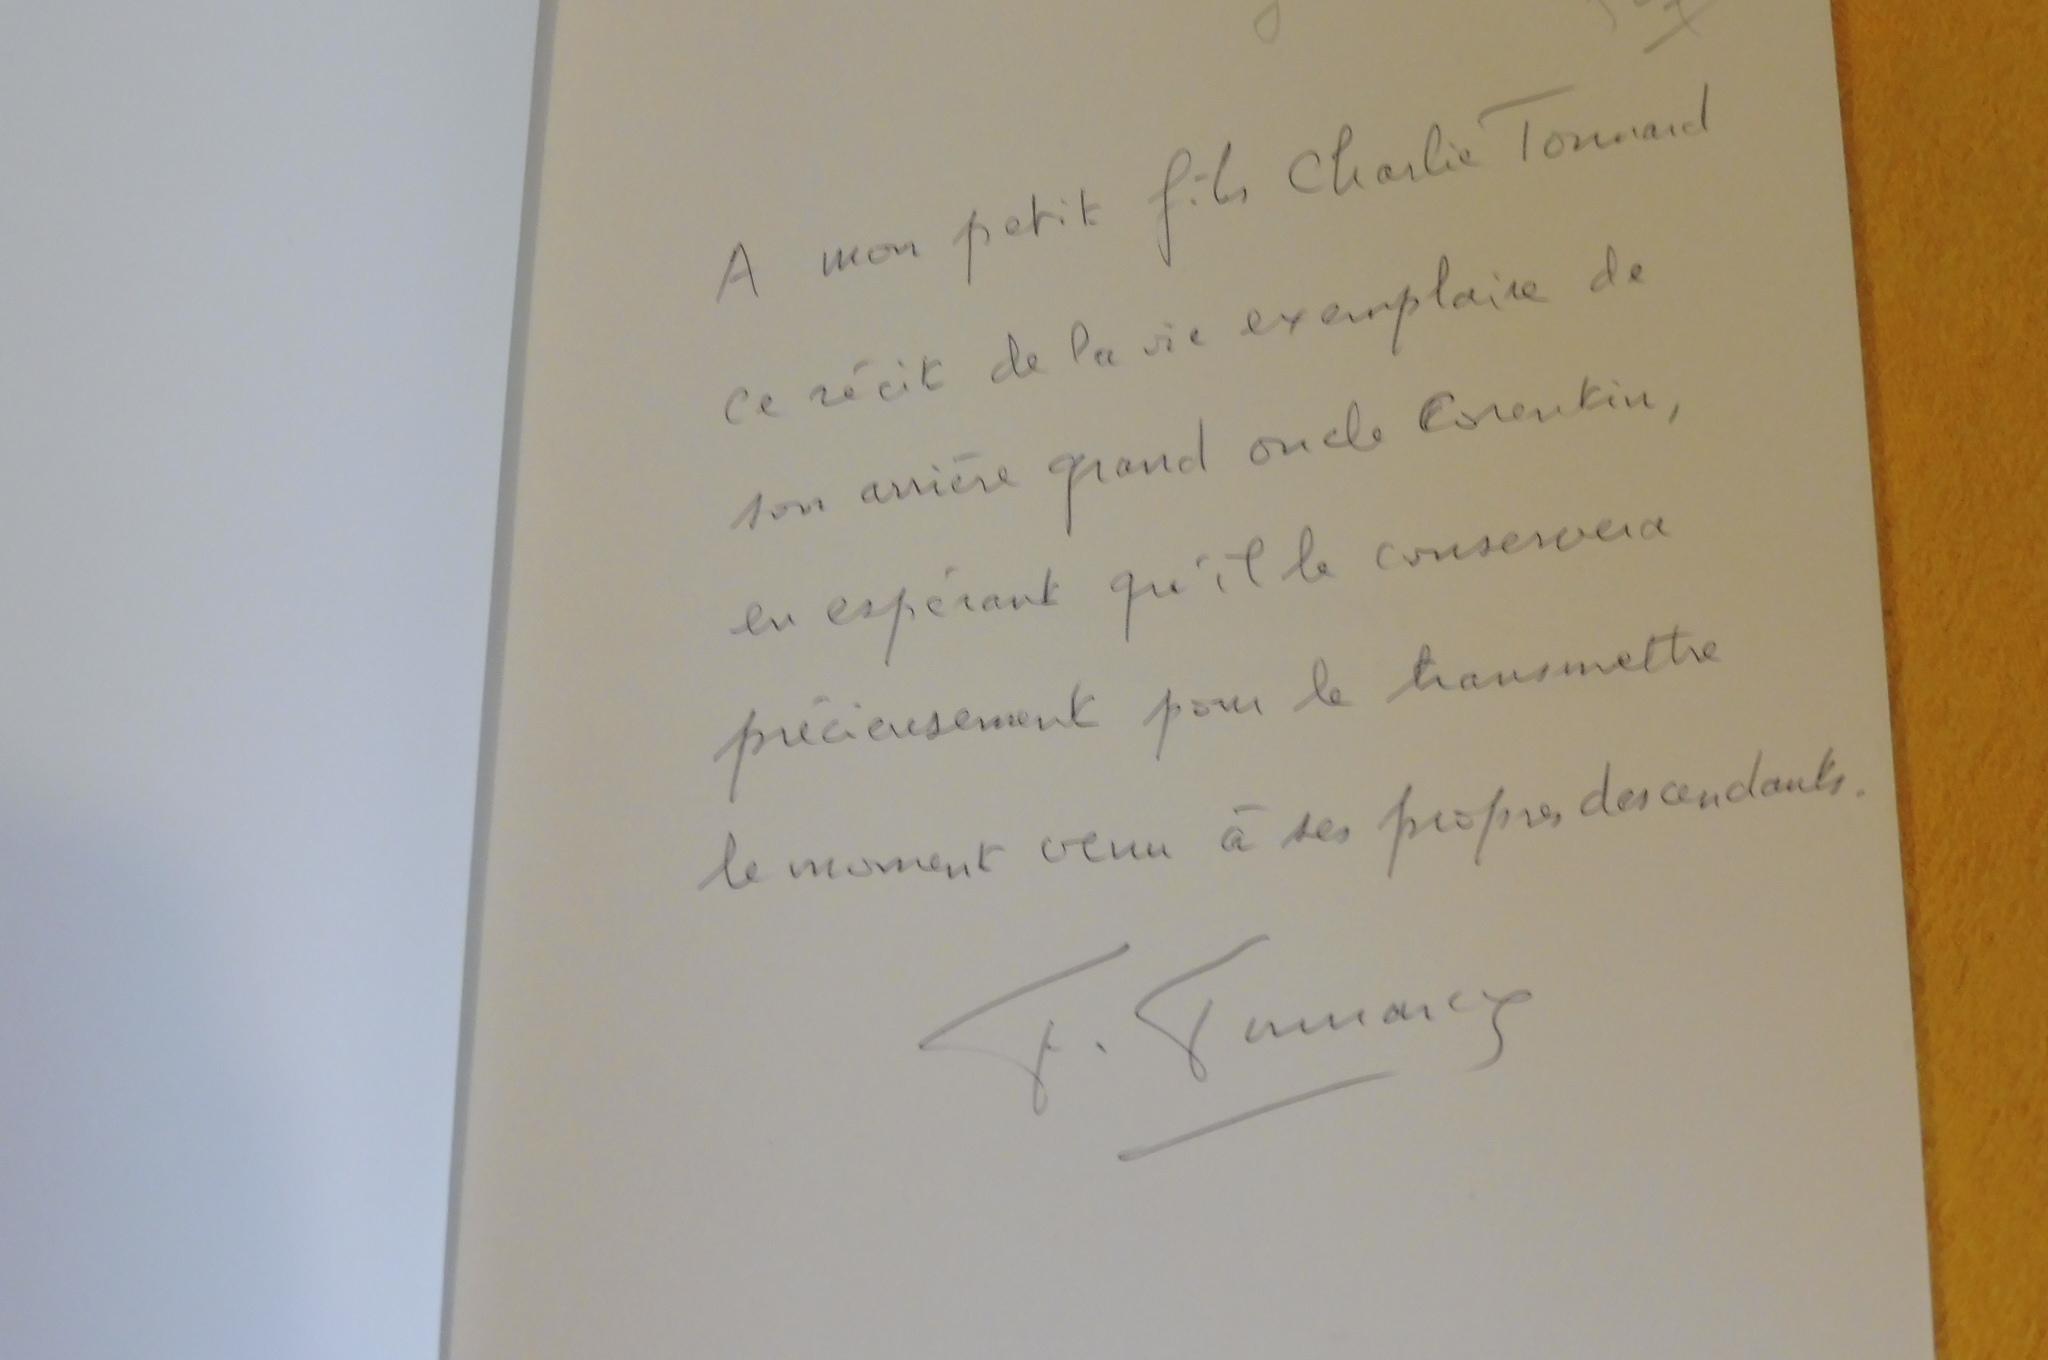 A mon petit fils Charlie Tonnard
ce récit de la vie exemplaire de
son arrière grand oncle Corentin,
en espérant qu'il le conservera
précieusement pour le transmettre
le moment venu à ses propres descendants.
F. Tonnard